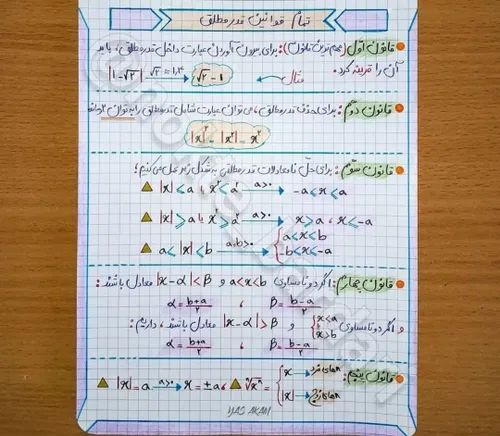 تمام قوانین قدر مطلق
قانون اول (مهم‌ترین قانون): برای بیرون آوردن عبارت داخل قدر مطلق، باید
آن را قرینه کرد. مثال → |1-√2| √2≃1,4 → √2-1
قانون دوم: برای حذف قدر مطلق، می‌توان عبارت شامل قدر مطلق را به توان ۲
|x|²=|x²|=x²
قانون سوم: برای حل نامعادلات قدر مطلقی به شکل زیر عمل می‌کنیم؛
▲ |x|<a یا x²<a² a>0 → -a<x<a
▲ |x|>a یا x²>a² a>0 → x>a ، x<-a
▲ a<|x|<b a,b>0 → { a<x<b
-b<x<-a
قانون چهارم: اگر دو نامساوی a<x<b و |x-α|<β معادل باشند:
α=(b+a)/2 ، β=(b-a)/2
و اگر دو نامساوی { x<a x>b و |x-α|>β معادل باشند، داریم:
α=(b+a)/2 ، β=(b-a)/2
قانون پنجم: ▲ |x|=a a>0 → x=±a ، ▲ ⁿ√xⁿ = { x → nهای فرد
|x| → nهای زوج
YAS AKAM